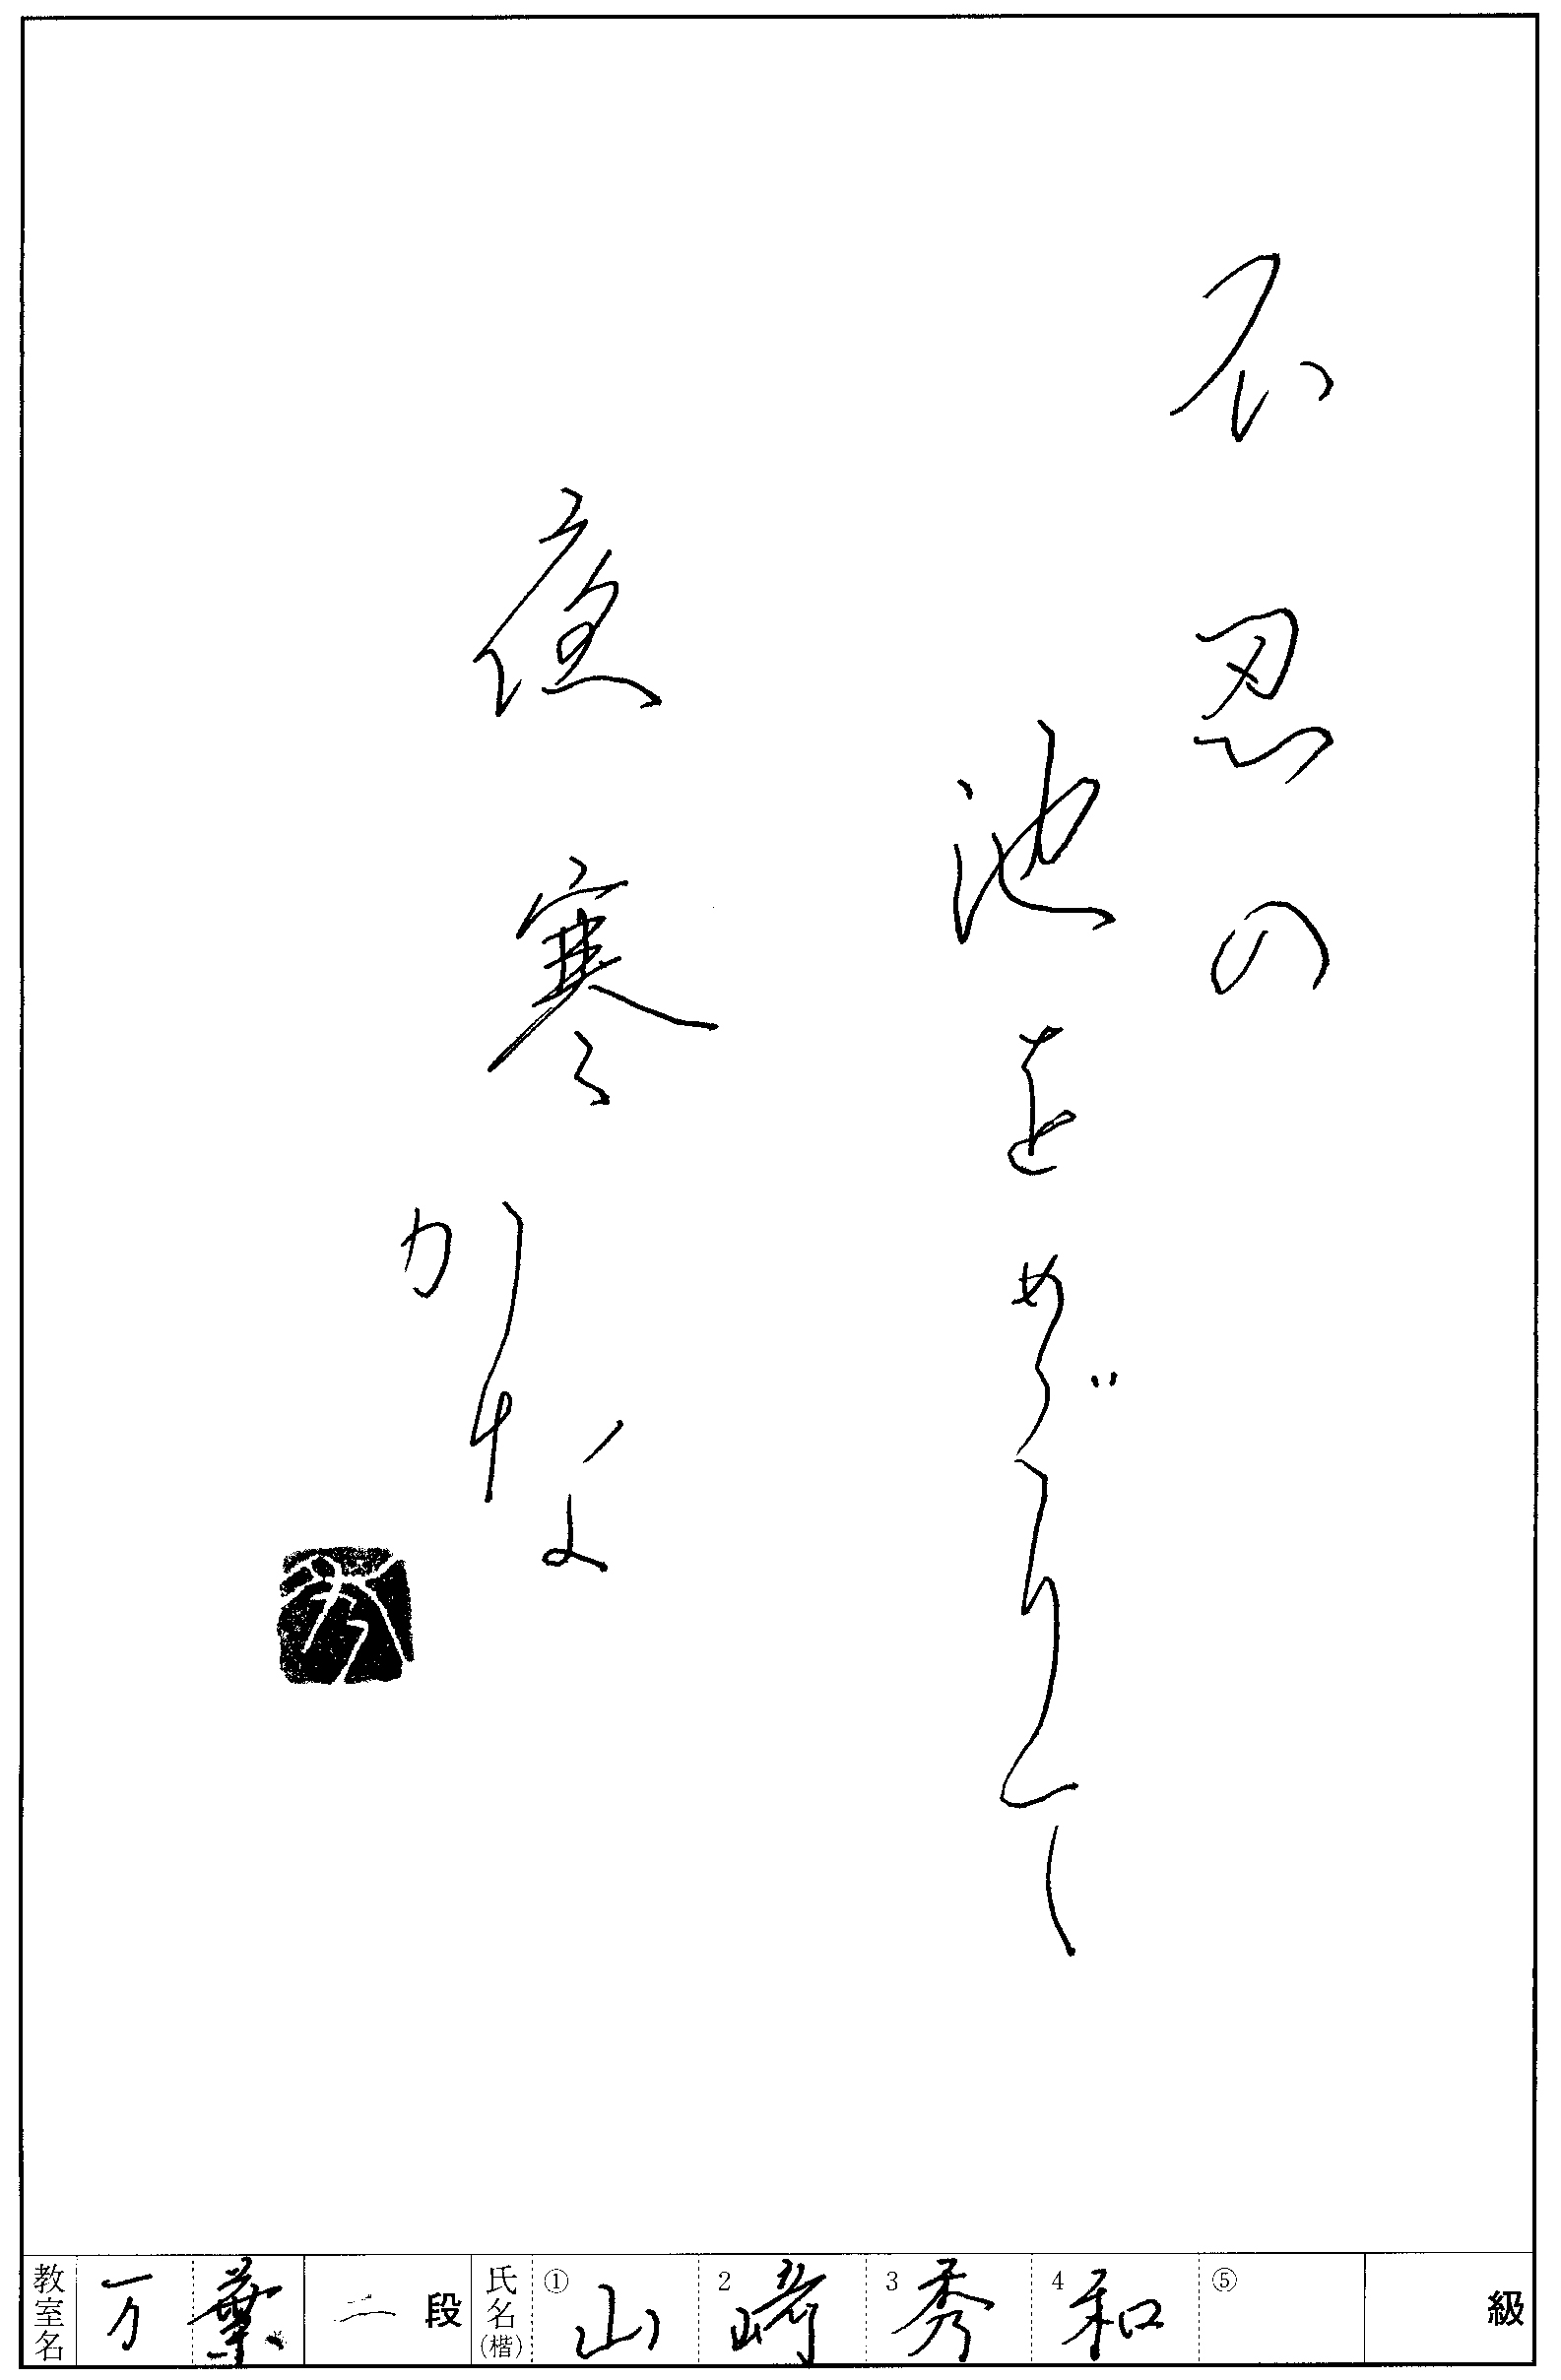 不忍の
池をめぐりし
夜寒かな
教室名 万葉 二段 氏名(楷) ① 山 2 崎 3 秀 4 和 ⑤ 級